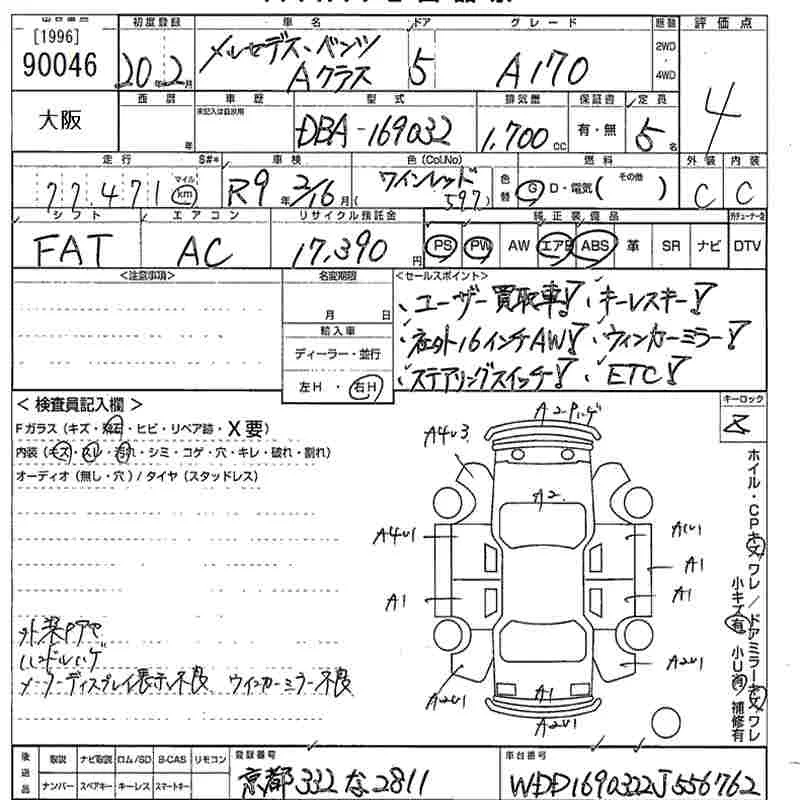 [1996]
90046
大阪
初度登録
20年2月
車名
メルセデス・ベンツ
Aクラス
ドア
5
グレード
A170
駆動
2WD
・
4WD
評価点
4
西暦
年
車歴
未記入は自家用
型式
DBA-169032
排気量
1,700cc
保証書
有・無
定員
5名
走行
S#*
77,471
マイル
km
車検
R9年2/16月
色(Col.No)
ワインレッド
(597)
色替
燃料
G D・電気( その他 )
外装
C
内装
C
シフト
FAT
エアコン
AC
リサイクル預託金
17,390円
純正装備品
PS PW AW エアB ABS 革 SR ナビ DTV
<注意事項>
名変期限
月 日
輸入車
ディーラー・並行
左H・右H
<セールスポイント>
、ユーザー買取車! 、キーレスキー!
、社外16インチAW! 、ウィンカーミラー!
、ステアリングスイッチ! 、ETC!
<検査員記入欄>
Fガラス(キズ・飛石・ヒビ・リペア跡・X要)
内装(キズ・スレ・汚れ・シミ・コゲ・穴・キレ・破れ・割れ)
オーディオ(無し・穴)/タイヤ(スタッドレス)
外装Pアセ
ハンドルハゲ
メーターディスプレイ表示不良 ウィンカーミラー不良
A2Pハゲ
A4U3
A2
A4U1
A1
A1
A1
A2U1
A2U1
A1
A2U1
キーロック
ホイル・CPキズワレ/ドアミラーキズワレ
小キズ有 小U有 補修有
後送品
取説 ナビ取説 ロム/SD B-CAS リモコン
ナンバー スペアキー キーレス スマートキー
登録番号
京都332な2811
車台番号
WDD1690322J556762